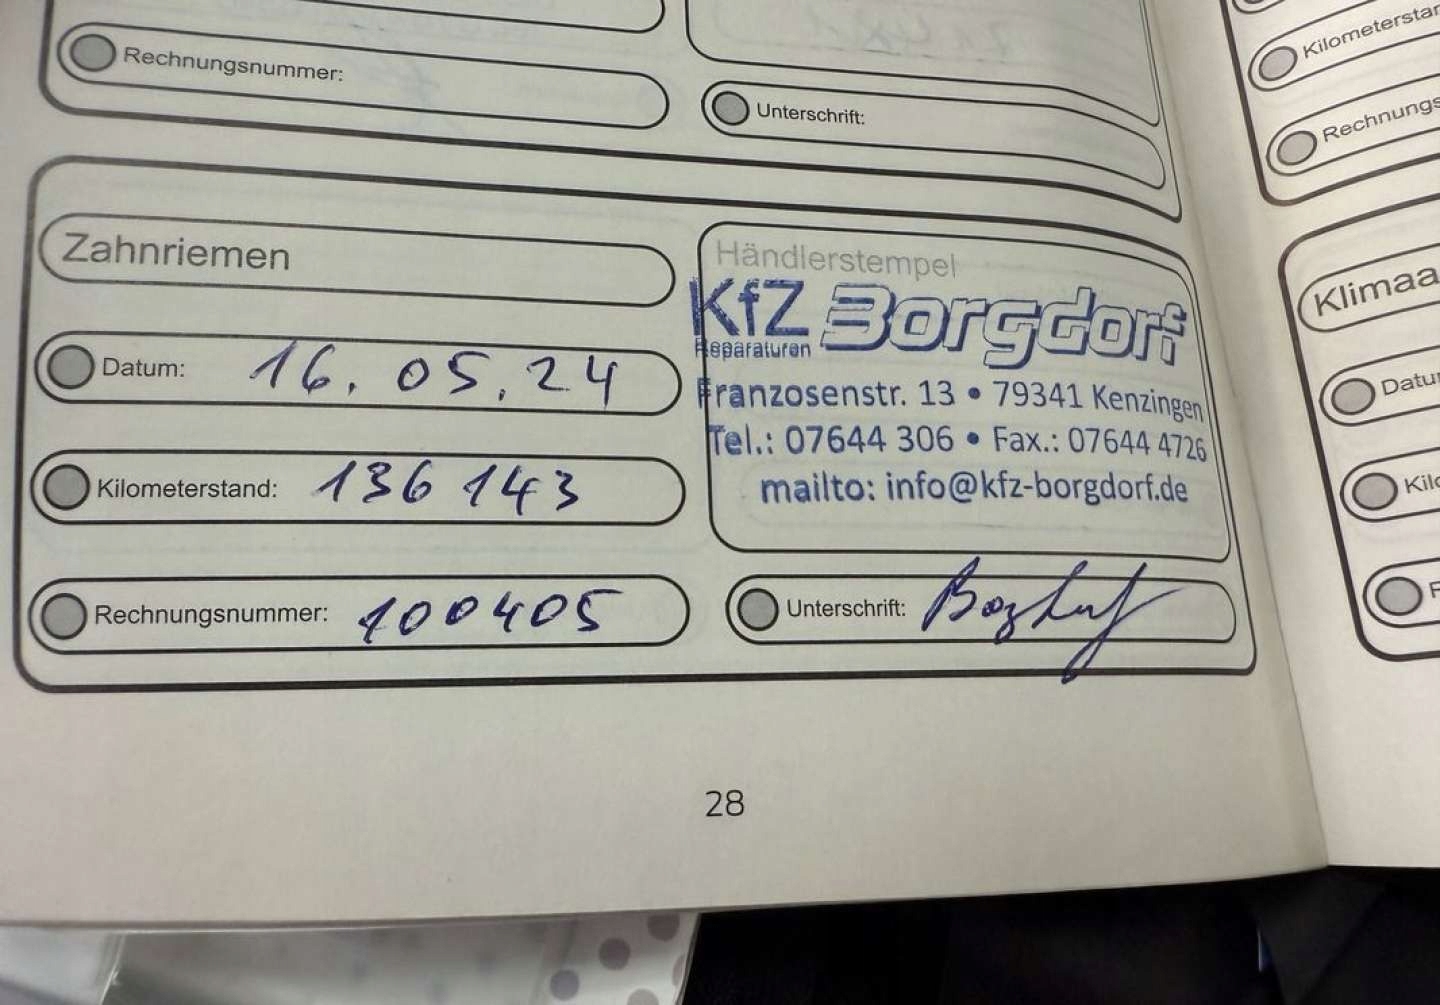 Rechnungsnummer:
Unterschrift:
Kilometerstan
Rechnungs
Zahnriemen
Datum: 16.05.24
Kilometerstand: 136 143
Rechnungsnummer: 100405
Händlerstempel
KfZ Borgdorf
Reparaturen
Franzosenstr. 13 • 79341 Kenzingen
Tel.: 07644 306 • Fax.: 07644 4726
mailto: info@kfz-borgdorf.de
Unterschrift:
Klimaa
Datu
Kilo
28